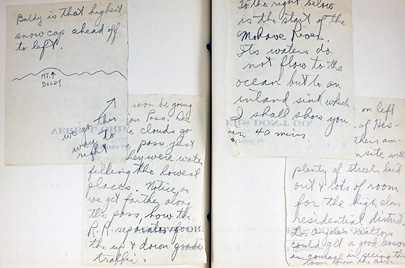 Baldy is that highest
snow cap ahead off
to left.
MT.
BALDY
we go this
way to
right
soon be going
Pass. 
clouds go
pass just
they were water
filling the lowest
places. Notice, as
we get farther along
the pass, how the
R.R. separates
the up & down grade
traffic.
To the right below
is the start of the
Mohave River.
Its waters do
not flow to the
ocean but to an
inland sink which
I shall show you
in 40 mins
on left
of Hes-
site with
plenty of streets laid
out & lots of room
for the high class
residential district.
could get a good lesson
in courage in seeing this
town from the air.